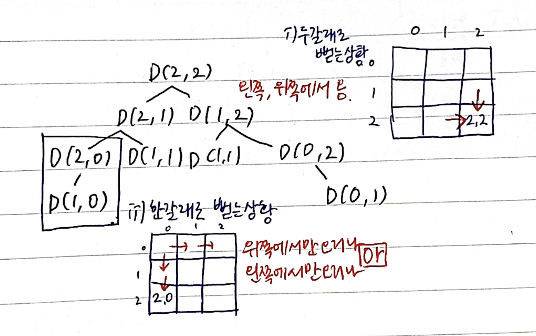 i) 두갈래로
뻗는상황
0 1 2
D(2,2)
왼쪽, 위쪽에서 옴.
1
2
2,2
D(2,1) D(1,2)
D(2,0) D(1,1) D(1,1) D(0,2)
D(1,0) D(0,1)
ii) 한갈래로 뻗는상황
0 1 2
0
1
2
2,0
위쪽에서만 오거나
왼쪽에서만 오거나
or